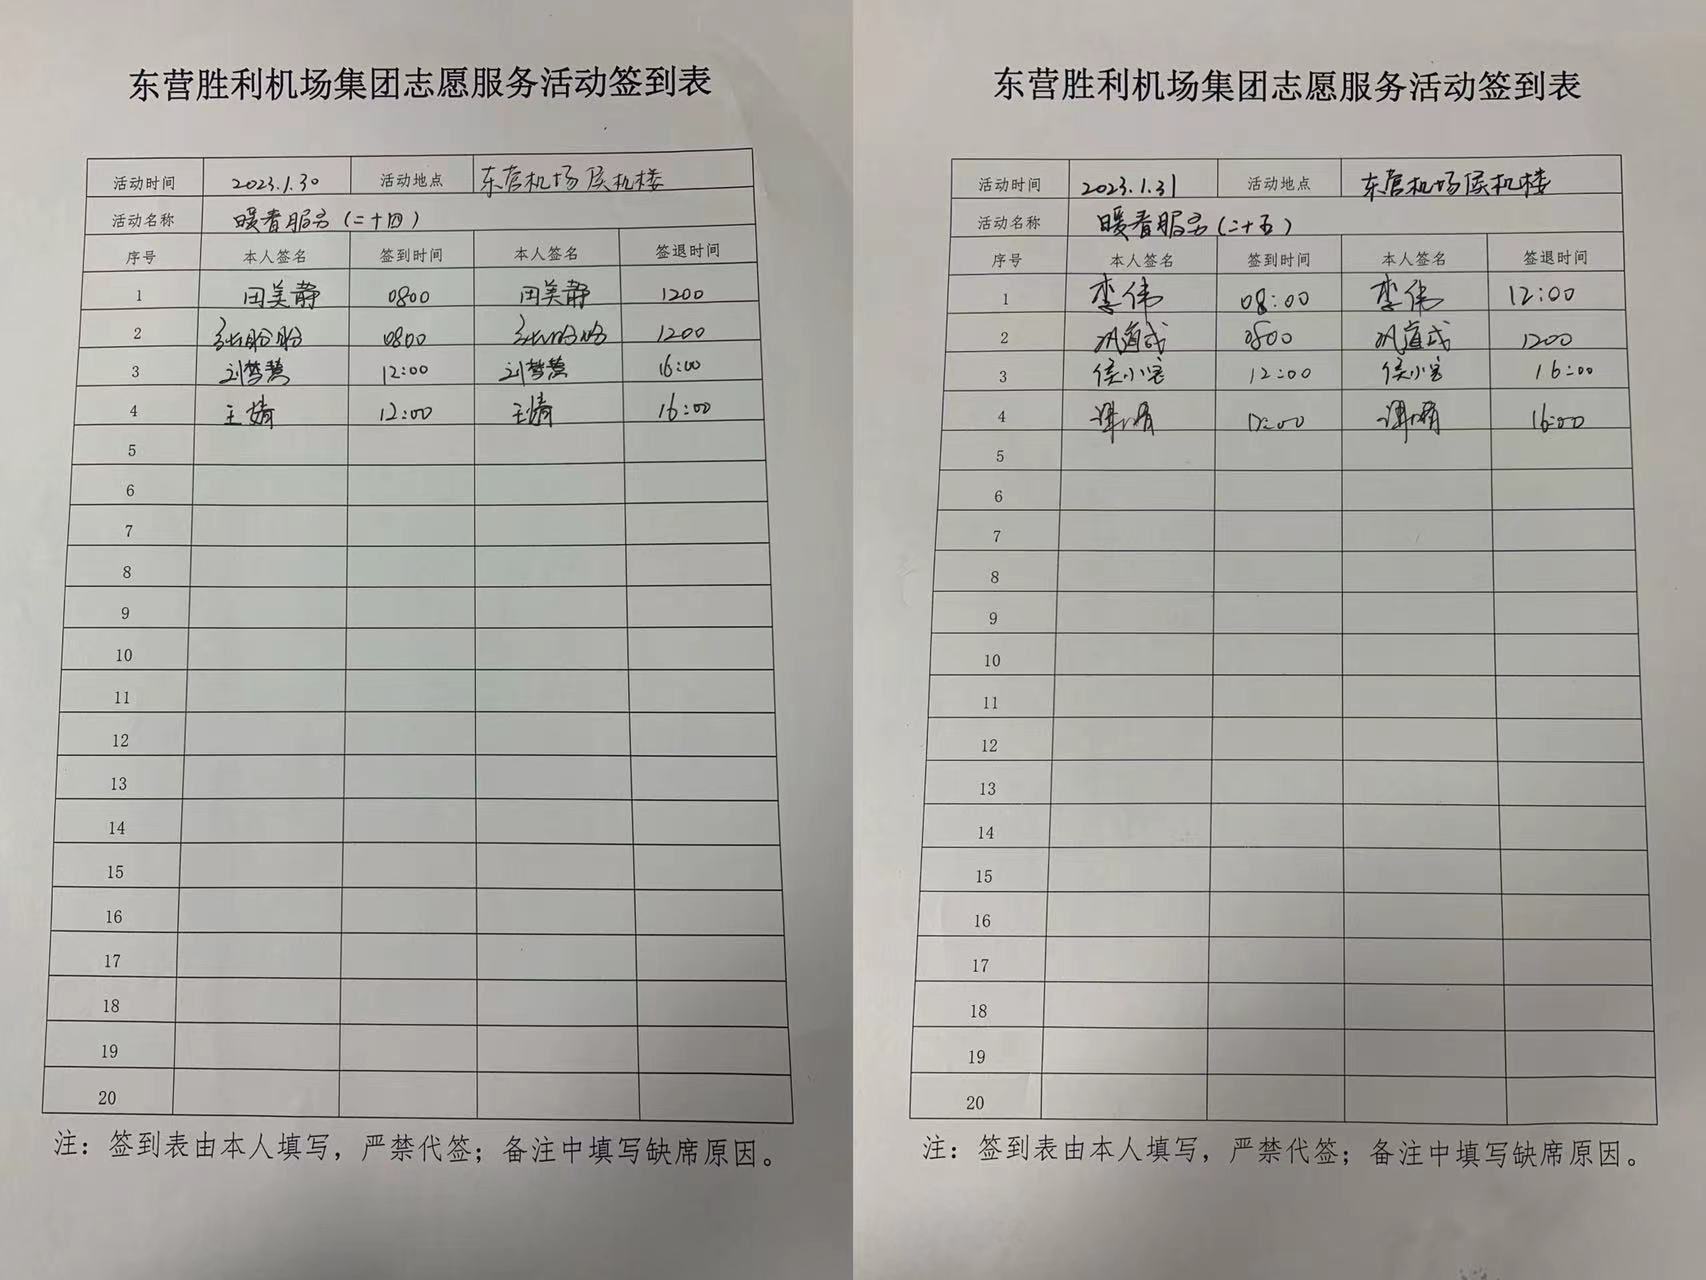 东营胜利机场集团志愿服务活动签到表
活动时间 2023.1.30 活动地点 东营机场候机楼
活动名称 暖春服务(二十四)
序号 本人签名 签到时间 本人签名 签退时间
1 田美静 0800 田美静 1200
2 张盼盼 0800 张盼盼 1200
3 刘梦慧 12:00 刘梦慧 16:00
4 王婧 12:00 王婧 16:00
5
6
7
8
9
10
11
12
13
14
15
16
17
18
19
20
注：签到表由本人填写，严禁代签；备注中填写缺席原因。
东营胜利机场集团志愿服务活动签到表
活动时间 2023.1.31 活动地点 东营机场候机楼
活动名称 暖春服务(二十五)
序号 本人签名 签到时间 本人签名 签退时间
1 李伟 08:00 李伟 12:00
2 0800 1200
3 侯小宝 12:00 侯小宝 16:00
4 12:00 16:00
5
6
7
8
9
10
11
12
13
14
15
16
17
18
19
20
注：签到表由本人填写，严禁代签；备注中填写缺席原因。